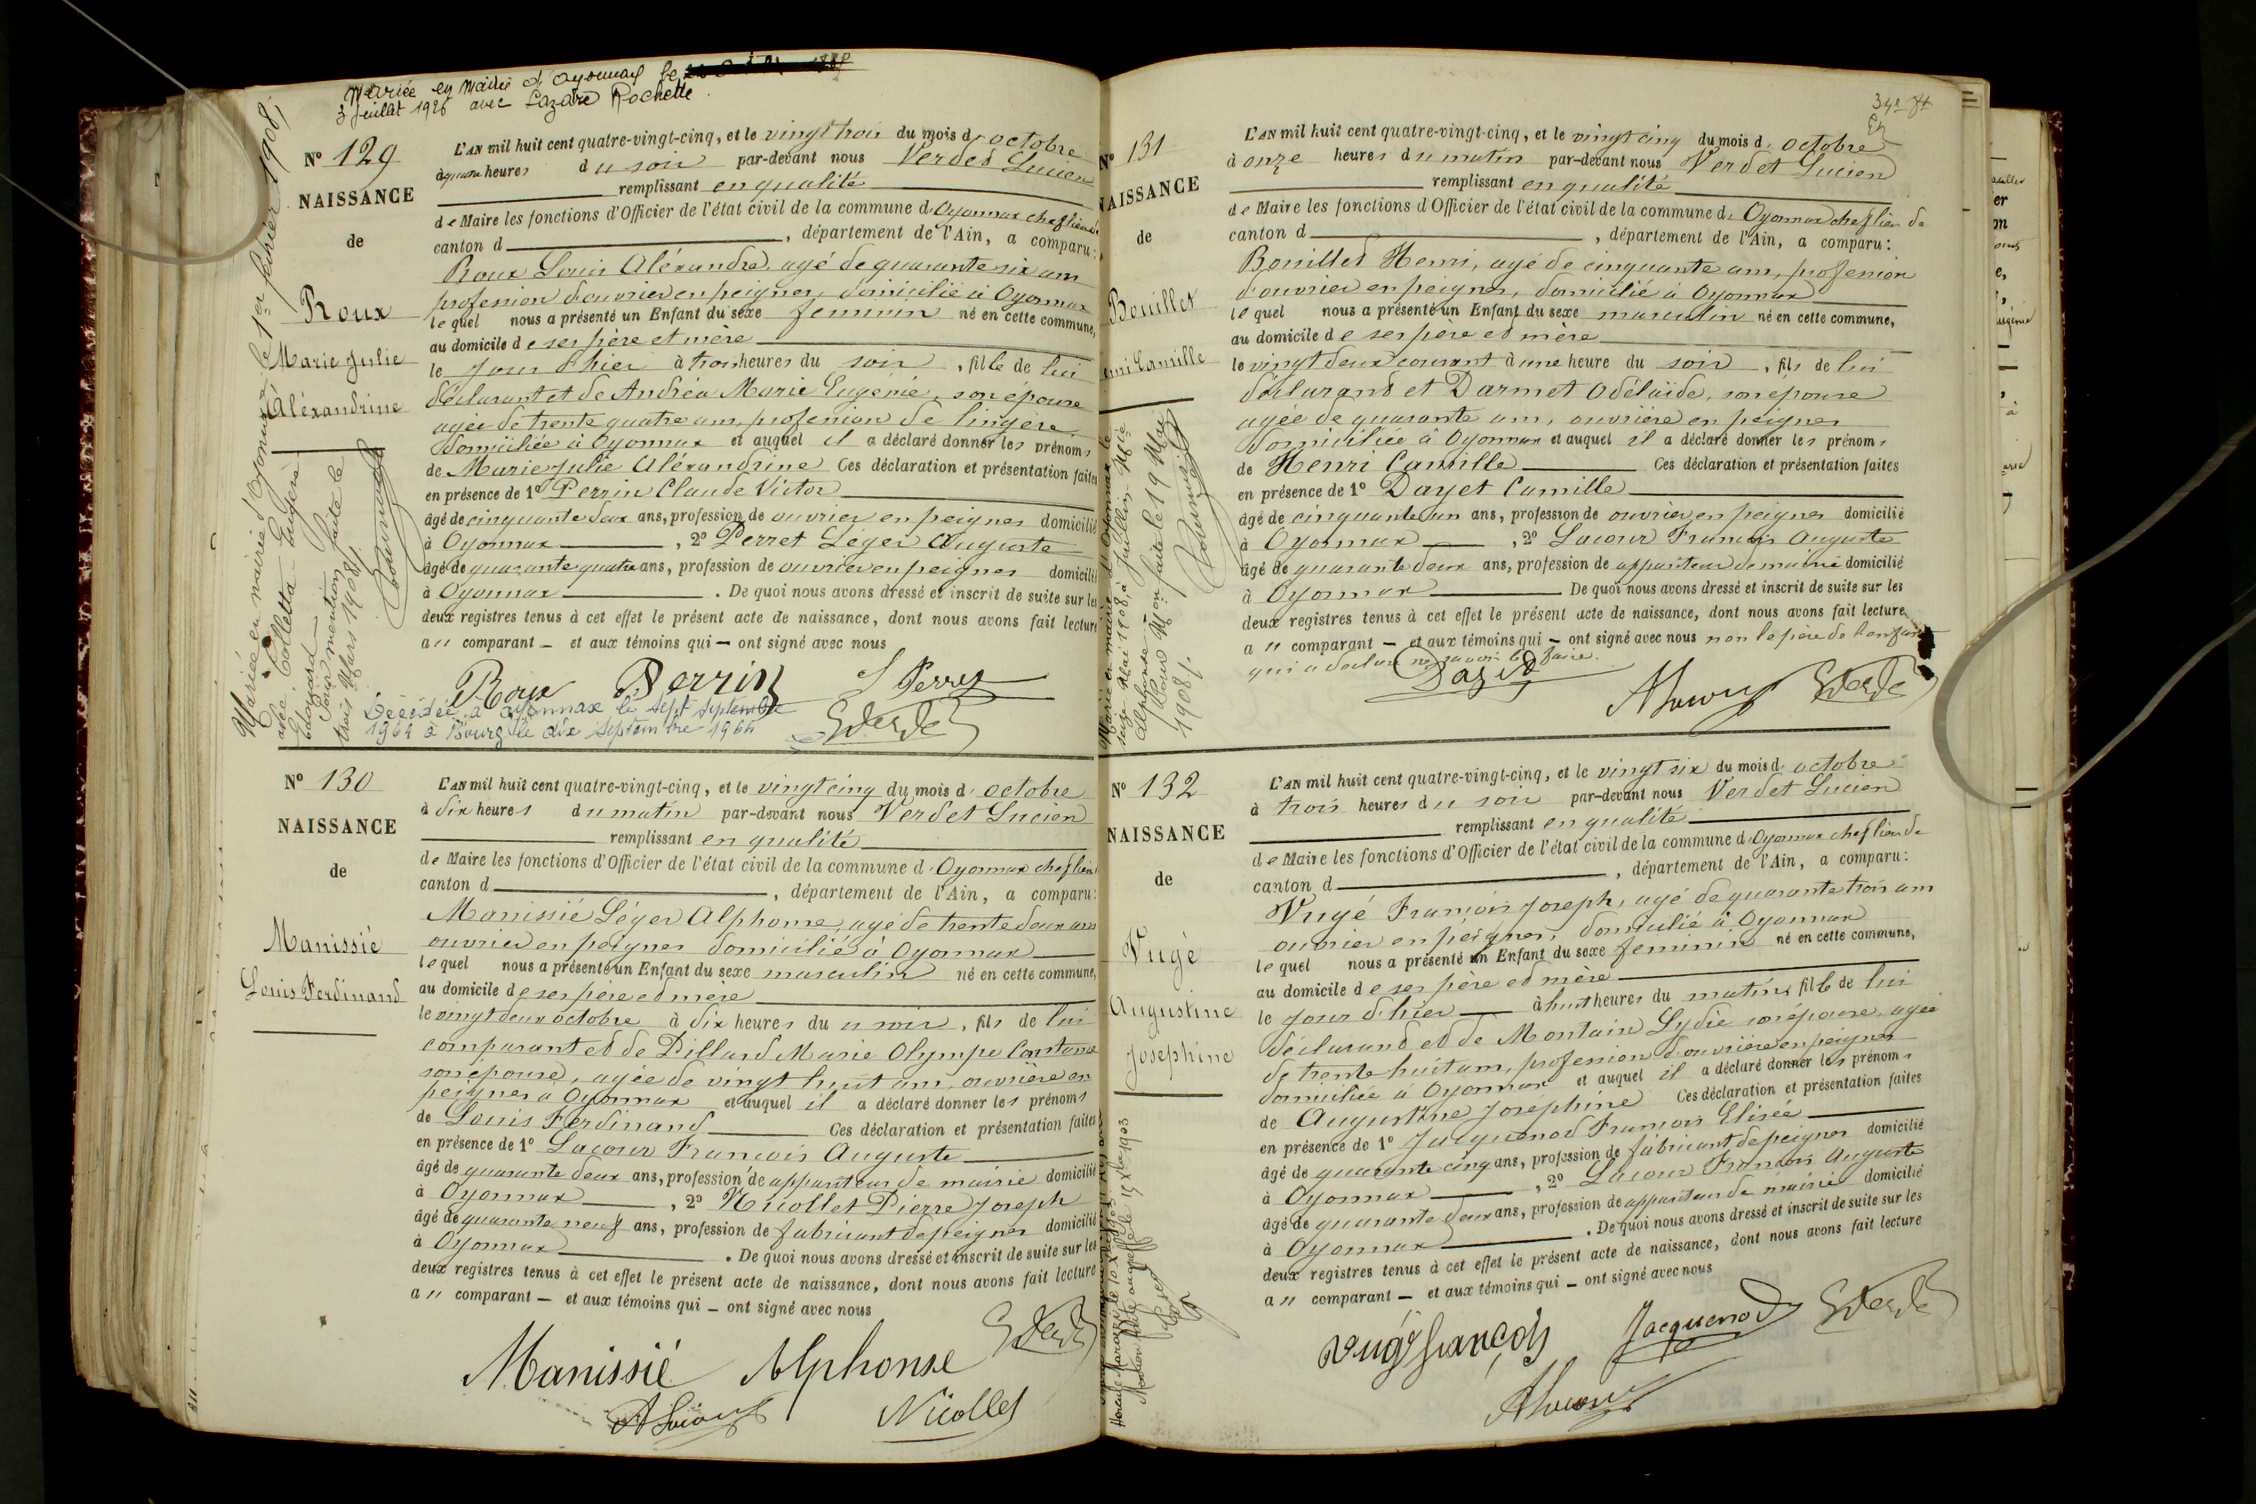 Mariée en Mairie d'Oyonnax le
3 Juillet 1926 avec Lazare Rochette
N° 129
NAISSANCE
de
Roux
Marie Julie
Aléxandrine
Mariée en mairie d'Oyonnax le 1er février 1908,
avec Colletta Eugène
Edouard
Pour mention faite le
trois Mars 1908.
L'AN mil huit cent quatre-vingt-cinq, et le vingt trois du mois d'octobre
à quatre heures du soir par-devant nous Verdet Lucien
remplissant en qualité
de Maire les fonctions d'Officier de l'état civil de la commune d'Oyonnax chef lieu de
canton d , département de l'Ain, a comparu:
Roux Louis Aléxandre, agé de quarante six ans
profession d'ouvrier en peignes, domicilié à Oyonnax
lequel nous a présenté un Enfant du sexe feminin né en cette commune,
au domicile de ses père et mère
le jour d'hier à trois heures du soir, fille de lui
déclarant et de Andréa Marie Eugénie, son épouse
agée de trente quatre ans, profession de lingere
domiciliée à Oyonnax et auquel il a déclaré donner les prénoms
de Marie Julie Aléxandrine Ces déclaration et présentation faites
en présence de 1° Perrin Claude Victor
âgé de cinquante deux ans, profession de ouvrier en peignes domicilié
à Oyonnax , 2° Perret Léger Auguste
âgé de quarante quatre ans, profession de ouvrier en peignes domicilié
à Oyonnax . De quoi nous avons dressé et inscrit de suite sur les
deux registres tenus à cet effet le présent acte de naissance, dont nous avons fait lecture
au comparant – et aux témoins qui – ont signé avec nous
Roux Perrin Perret
Décédée à Oyonnax le sept septembre
1964 à Bourg le dix septembre 1964
N° 130
NAISSANCE
de
Manissié
Louis Ferdinand
L'AN mil huit cent quatre-vingt-cinq, et le vingt cinq du mois d'octobre
à dix heures du matin par-devant nous Verdet Lucien
remplissant en qualité
de Maire les fonctions d'Officier de l'état civil de la commune d'Oyonnax chef lieu
canton d , département de l'Ain, a comparu:
Manissié Léger Alphonse, agé de trente deux ans
ouvrier en peignes domicilié à Oyonnax
lequel nous a présenté un Enfant du sexe masculin né en cette commune,
au domicile de ses père et mère
le vingt deux octobre à dix heures du soir, fils de lui
comparant et de Dillard Marie Olympe Constance
son épouse, agée de vingt huit ans, ouvrière en
peignes à Oyonnax et auquel il a déclaré donner les prénoms
de Louis Ferdinand Ces déclaration et présentation faites
en présence de 1° Lacour François Auguste
âgé de quarante deux ans, profession de appariteur de mairie domicilié
à Oyonnax , 2° Nicollet Pierre Joseph
âgé de quarante neuf ans, profession de fabricant de peignes domicilié
à Oyonnax . De quoi nous avons dressé et inscrit de suite sur les
deux registres tenus à cet effet le présent acte de naissance, dont nous avons fait lecture
au comparant – et aux témoins qui – ont signé avec nous
Manissié Alphonse
ALacour Nicollet
N° 131
NAISSANCE
de
Bouillet
Henri Camille
Marié en mairie d'Oyonnax le
seize Mai 1908, à Juillen Marie
Alphonsine
Pour Mon faite le 19 Mai
1908.
L'AN mil huit cent quatre-vingt-cinq, et le vingt cinq du mois d'octobre
à onze heures du matin par-devant nous Verdet Lucien
remplissant en qualité
de Maire les fonctions d'Officier de l'état civil de la commune d'Oyonnax chef lieu de
canton d , département de l'Ain, a comparu:
Bouillet Henri, agé de cinquante ans, profession
d'ouvrier en peignes, domicilié à Oyonnax
lequel nous a présenté un Enfant du sexe masculin né en cette commune,
au domicile de ses père et mère
le vingt deux courant à une heure du soir, fils de lui
déclarant et Darmet Adélaïde, son épouse
agée de quarante ans, ouvrière en peignes
domiciliée à Oyonnax et auquel il a déclaré donner les prénoms
de Henri Camille Ces déclaration et présentation faites
en présence de 1° Dayet Camille
âgé de cinquante un ans, profession de ouvrier en peignes domicilié
à Oyonnax , 2° Lacour François Auguste
âgé de quarante deux ans, profession de appariteur de mairie domicilié
à Oyonnax De quoi nous avons dressé et inscrit de suite sur les
deux registres tenus à cet effet le présent acte de naissance, dont nous avons fait lecture
au comparant – et aux témoins qui – ont signé avec nous non le père de l'enfant
qui a déclaré ne savoir le faire.
ALacour
N° 132
NAISSANCE
de
Vugé
Augustine
Joséphine
L'AN mil huit cent quatre-vingt-cinq, et le vingt six du mois d'octobre
à trois heures du soir par-devant nous Verdet Lucien
remplissant en qualité
de Maire les fonctions d'Officier de l'état civil de la commune d'Oyonnax chef lieu de
canton d , département de l'Ain, a comparu:
Vugé François Joseph, agé de quarante trois ans
ouvrier en peignes, domicilié à Oyonnax
lequel nous a présenté un Enfant du sexe feminin né en cette commune,
au domicile de ses père et mère
le jour d'hier à huit heures du matin, fille de lui
déclarant et de Montain Lydie son épouse, agée
de trente huit ans, profession d'ouvrière en peignes
domiciliée à Oyonnax et auquel il a déclaré donner les prénoms
de Augustine Joséphine Ces déclaration et présentation faites
en présence de 1° Jacquenod François Elisée
âgé de quarante cinq ans, profession de fabricant de peignes domicilié
à Oyonnax , 2° Lacour François Auguste
âgé de quarante deux ans, profession de appariteur de mairie domicilié
à Oyonnax . De quoi nous avons dressé et inscrit de suite sur les
deux registres tenus à cet effet le présent acte de naissance, dont nous avons fait lecture
au comparant – et aux témoins qui – ont signé avec nous
Vugé françois Jacquenod
ALacour